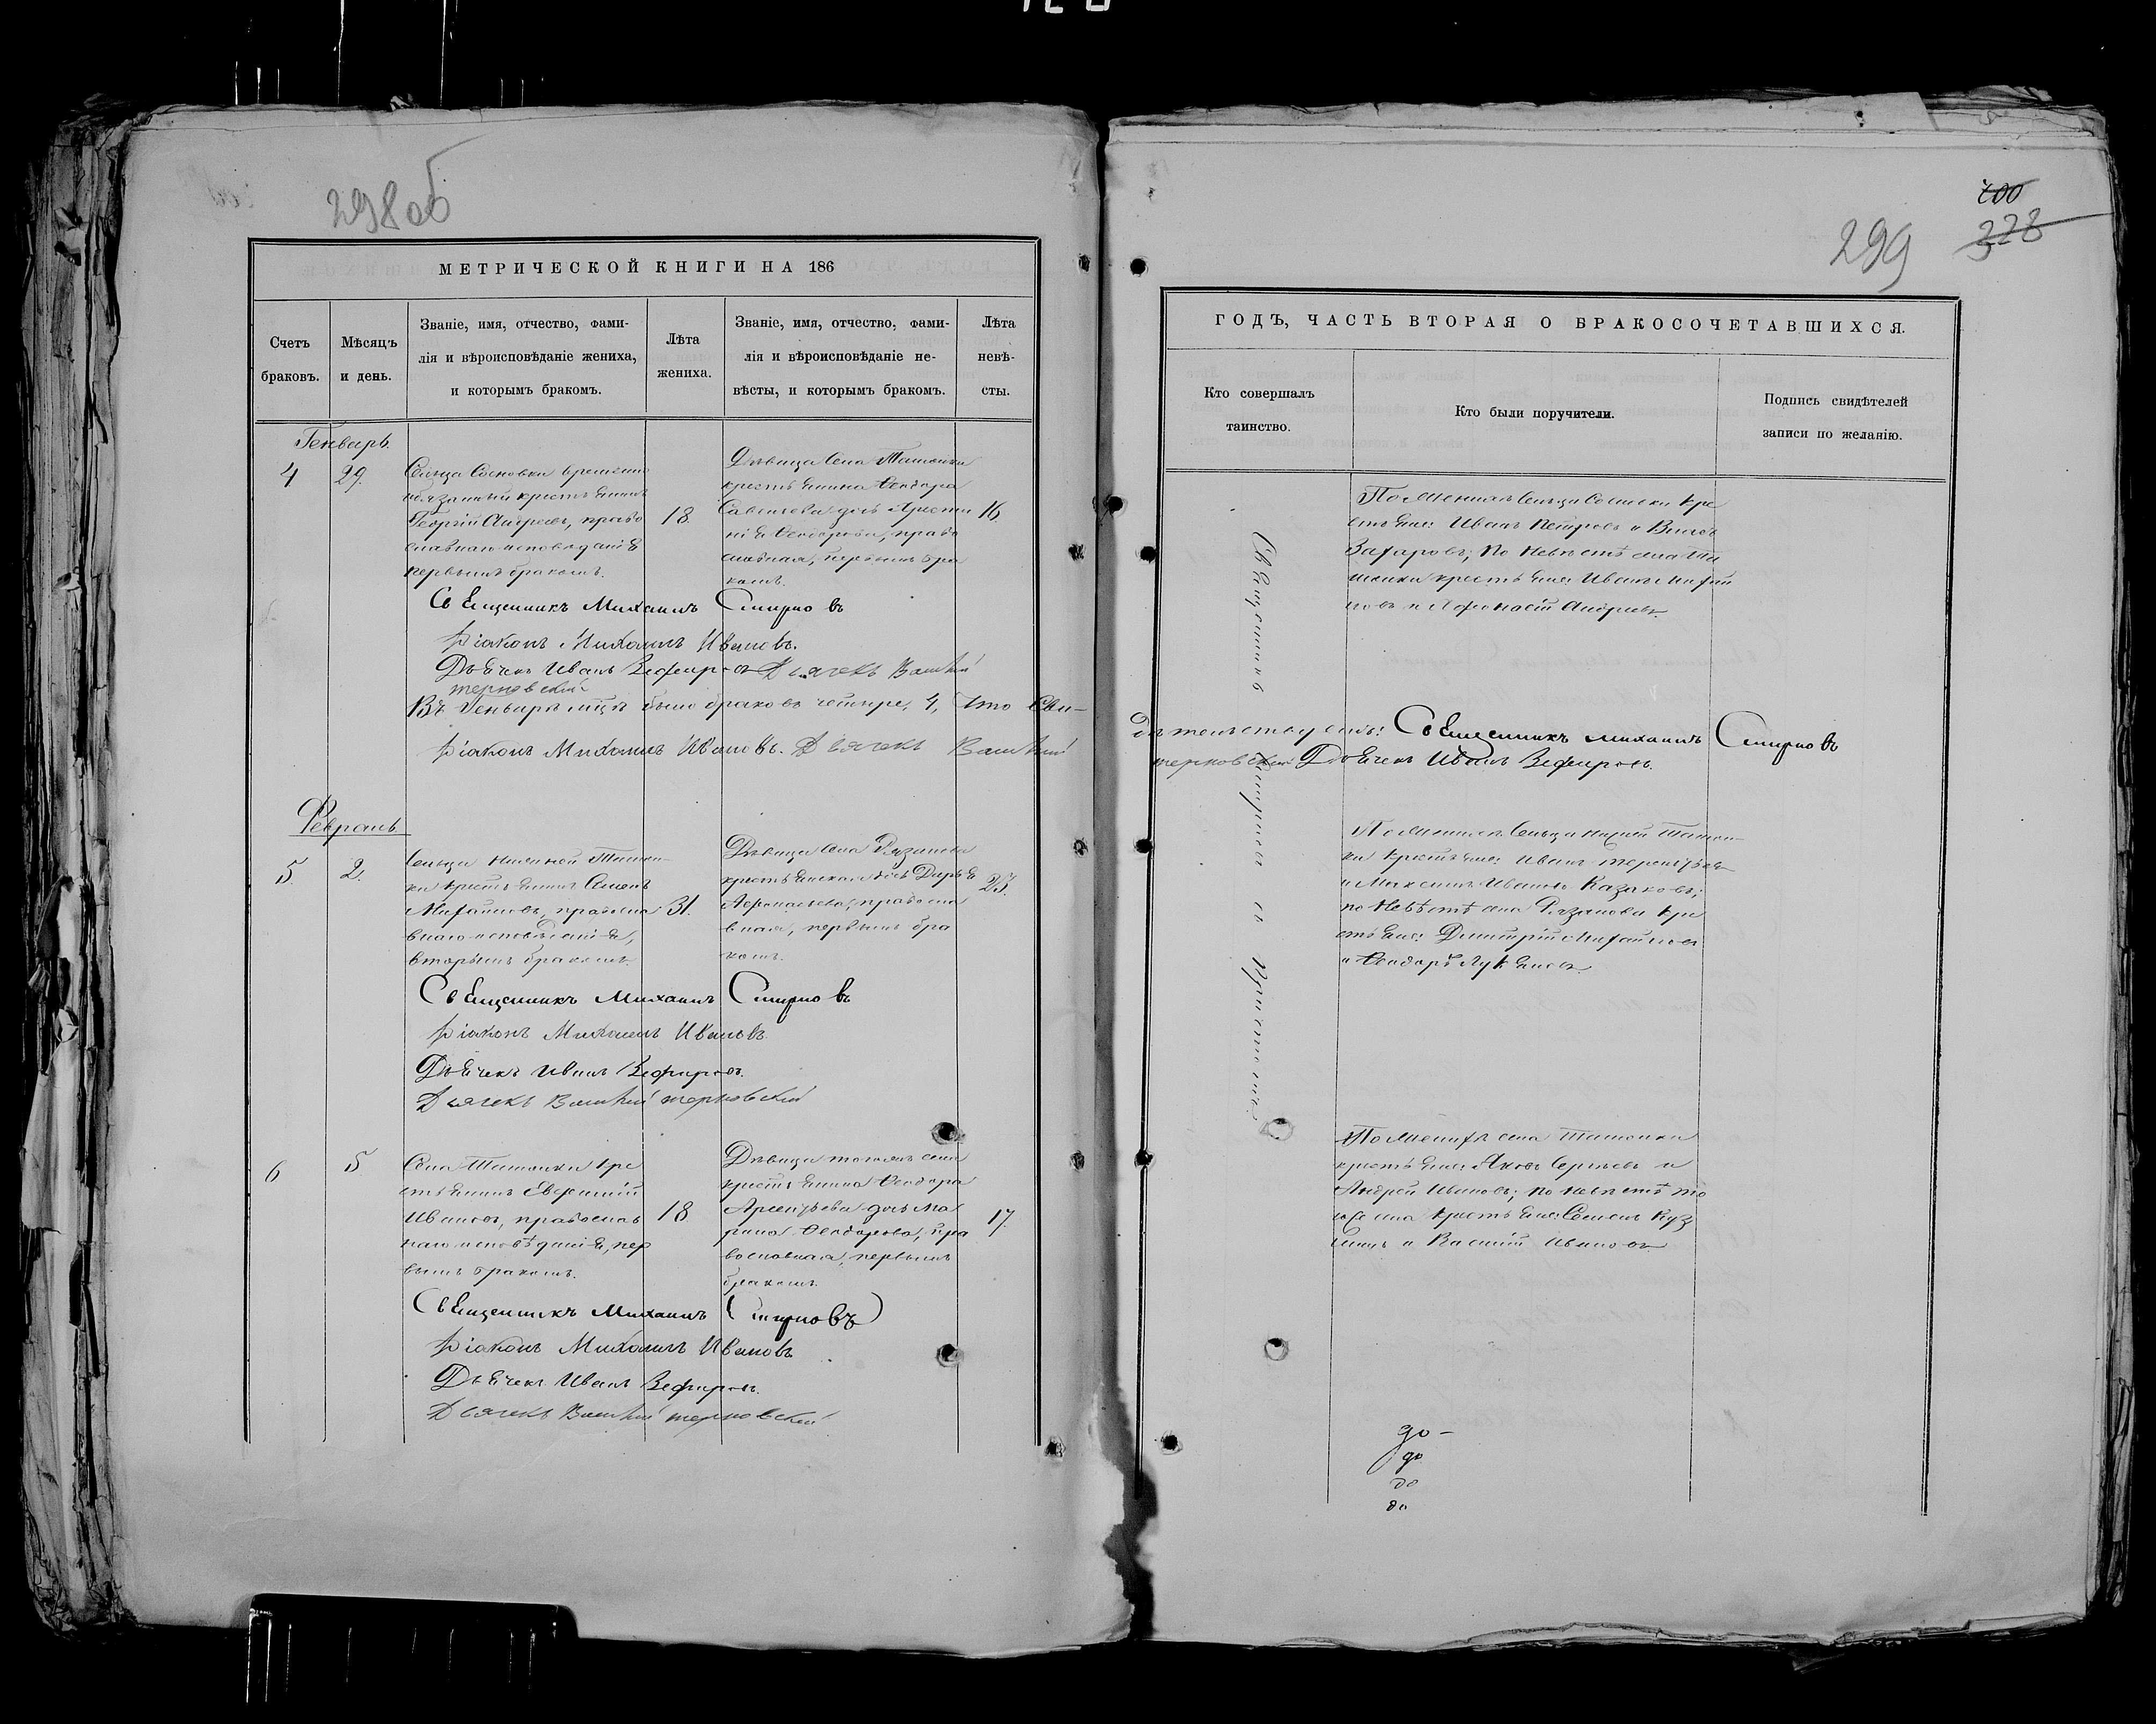 298об
МЕТРИЧЕСКОЙ КНИГИ НА 186
Счетъ
браковъ.
Мѣсяцъ
и день.
Званіе, имя, отчество, фами-
лія и вѣроисповѣданіе жениха,
и которымъ бракомъ.
Лѣта
жениха.
Званіе, имя, отчество, фами-
лія и вѣроисповѣданіе не-
вѣсты, и которымъ бракомъ.
Лѣта
невѣ-
сты.
Генварь.
4
29.
Сельца Сосновки временно
обязанный крестьянинъ
Георгій Андреевъ, право
славнаго исповѣданія
первымъ бракомъ.
18.
Дѣвица села
крестьянина Ѳеодора
Савельева дочь
Ѳеодорова, право
славная, первымъ бра
комъ.
16.
Священникъ Михаилъ Смирновъ
Діаконъ Михаилъ Ивановъ.
Дьячекъ Иванъ Зефировъ Дьячекъ Василий
терновский
Въ Генварѣ мцѣ было браковъ четыре, 4, Что сви-
Діаконъ Михаилъ Ивановъ. Дьячекъ Василий
Февраль
5.
2.
Сельца
крестьянинъ Семенъ
Михайловъ, правосла
внаго исповѣданія,
вторымъ бракомъ.
31.
Дѣвица села Рязанова
крестьянская дочь Дарья
правосла
вная, первымъ бра
комъ.
23.
Священникъ Михаилъ Смирновъ
Діаконъ Михаилъ Ивановъ.
Дьячекъ Иванъ Зефировъ.
Дьячекъ Василий терновский
6
5
Села кре
стьянинъ Евфимій
Ивановъ, православ
наго исповѣданія, пер
вымъ бракомъ.
18
Дѣвица тогожъ села
крестьянина Ѳеодора
Арсентьева дочь Ма
рина Ѳеодорова, пра
вославная, первымъ
бракомъ.
17.
Священникъ Михаилъ Смирновъ
Діаконъ Михаилъ Ивановъ.
Дьячекъ Иванъ Зефировъ.
Дьячекъ Василий терновский
700
328
299
ГОДЪ, ЧАСТЬ ВТОРАЯ О БРАКОСОЧЕТАВШИХСЯ.
Кто совершалъ
таинство.
Кто были поручители.
Подпись свидѣтелей
записи по желанію.
Священникъ Смирновъ съ Причтомъ.
По женихѣ Сельца Сосновки кре
стьяне: Иванъ Петровъ и
Захаровъ; по невѣстѣ села
крестьяне: Иванъ Михай
ловъ и Афонасій Андреевъ.
дѣтельствуемъ: Священникъ Михаилъ Смирновъ
терновский Дьячекъ Иванъ Зефировъ.
По женихѣ Сельца
ки крестьяне: Иванъ Терентьевъ
и Максимъ Ивановъ Казаковъ;
по невѣстѣ села Рязанова кре
стьяне: Димитрій Михайловъ
и Ѳеодоръ Лукьяновъ
По женихѣ села
крестьяне: Яковъ Сергѣевъ и
Андрей Ивановъ; по невѣстѣ то
гоже села крестьяне: Семенъ Куз
минъ и Василій Ивановъ
до-
до
до
до